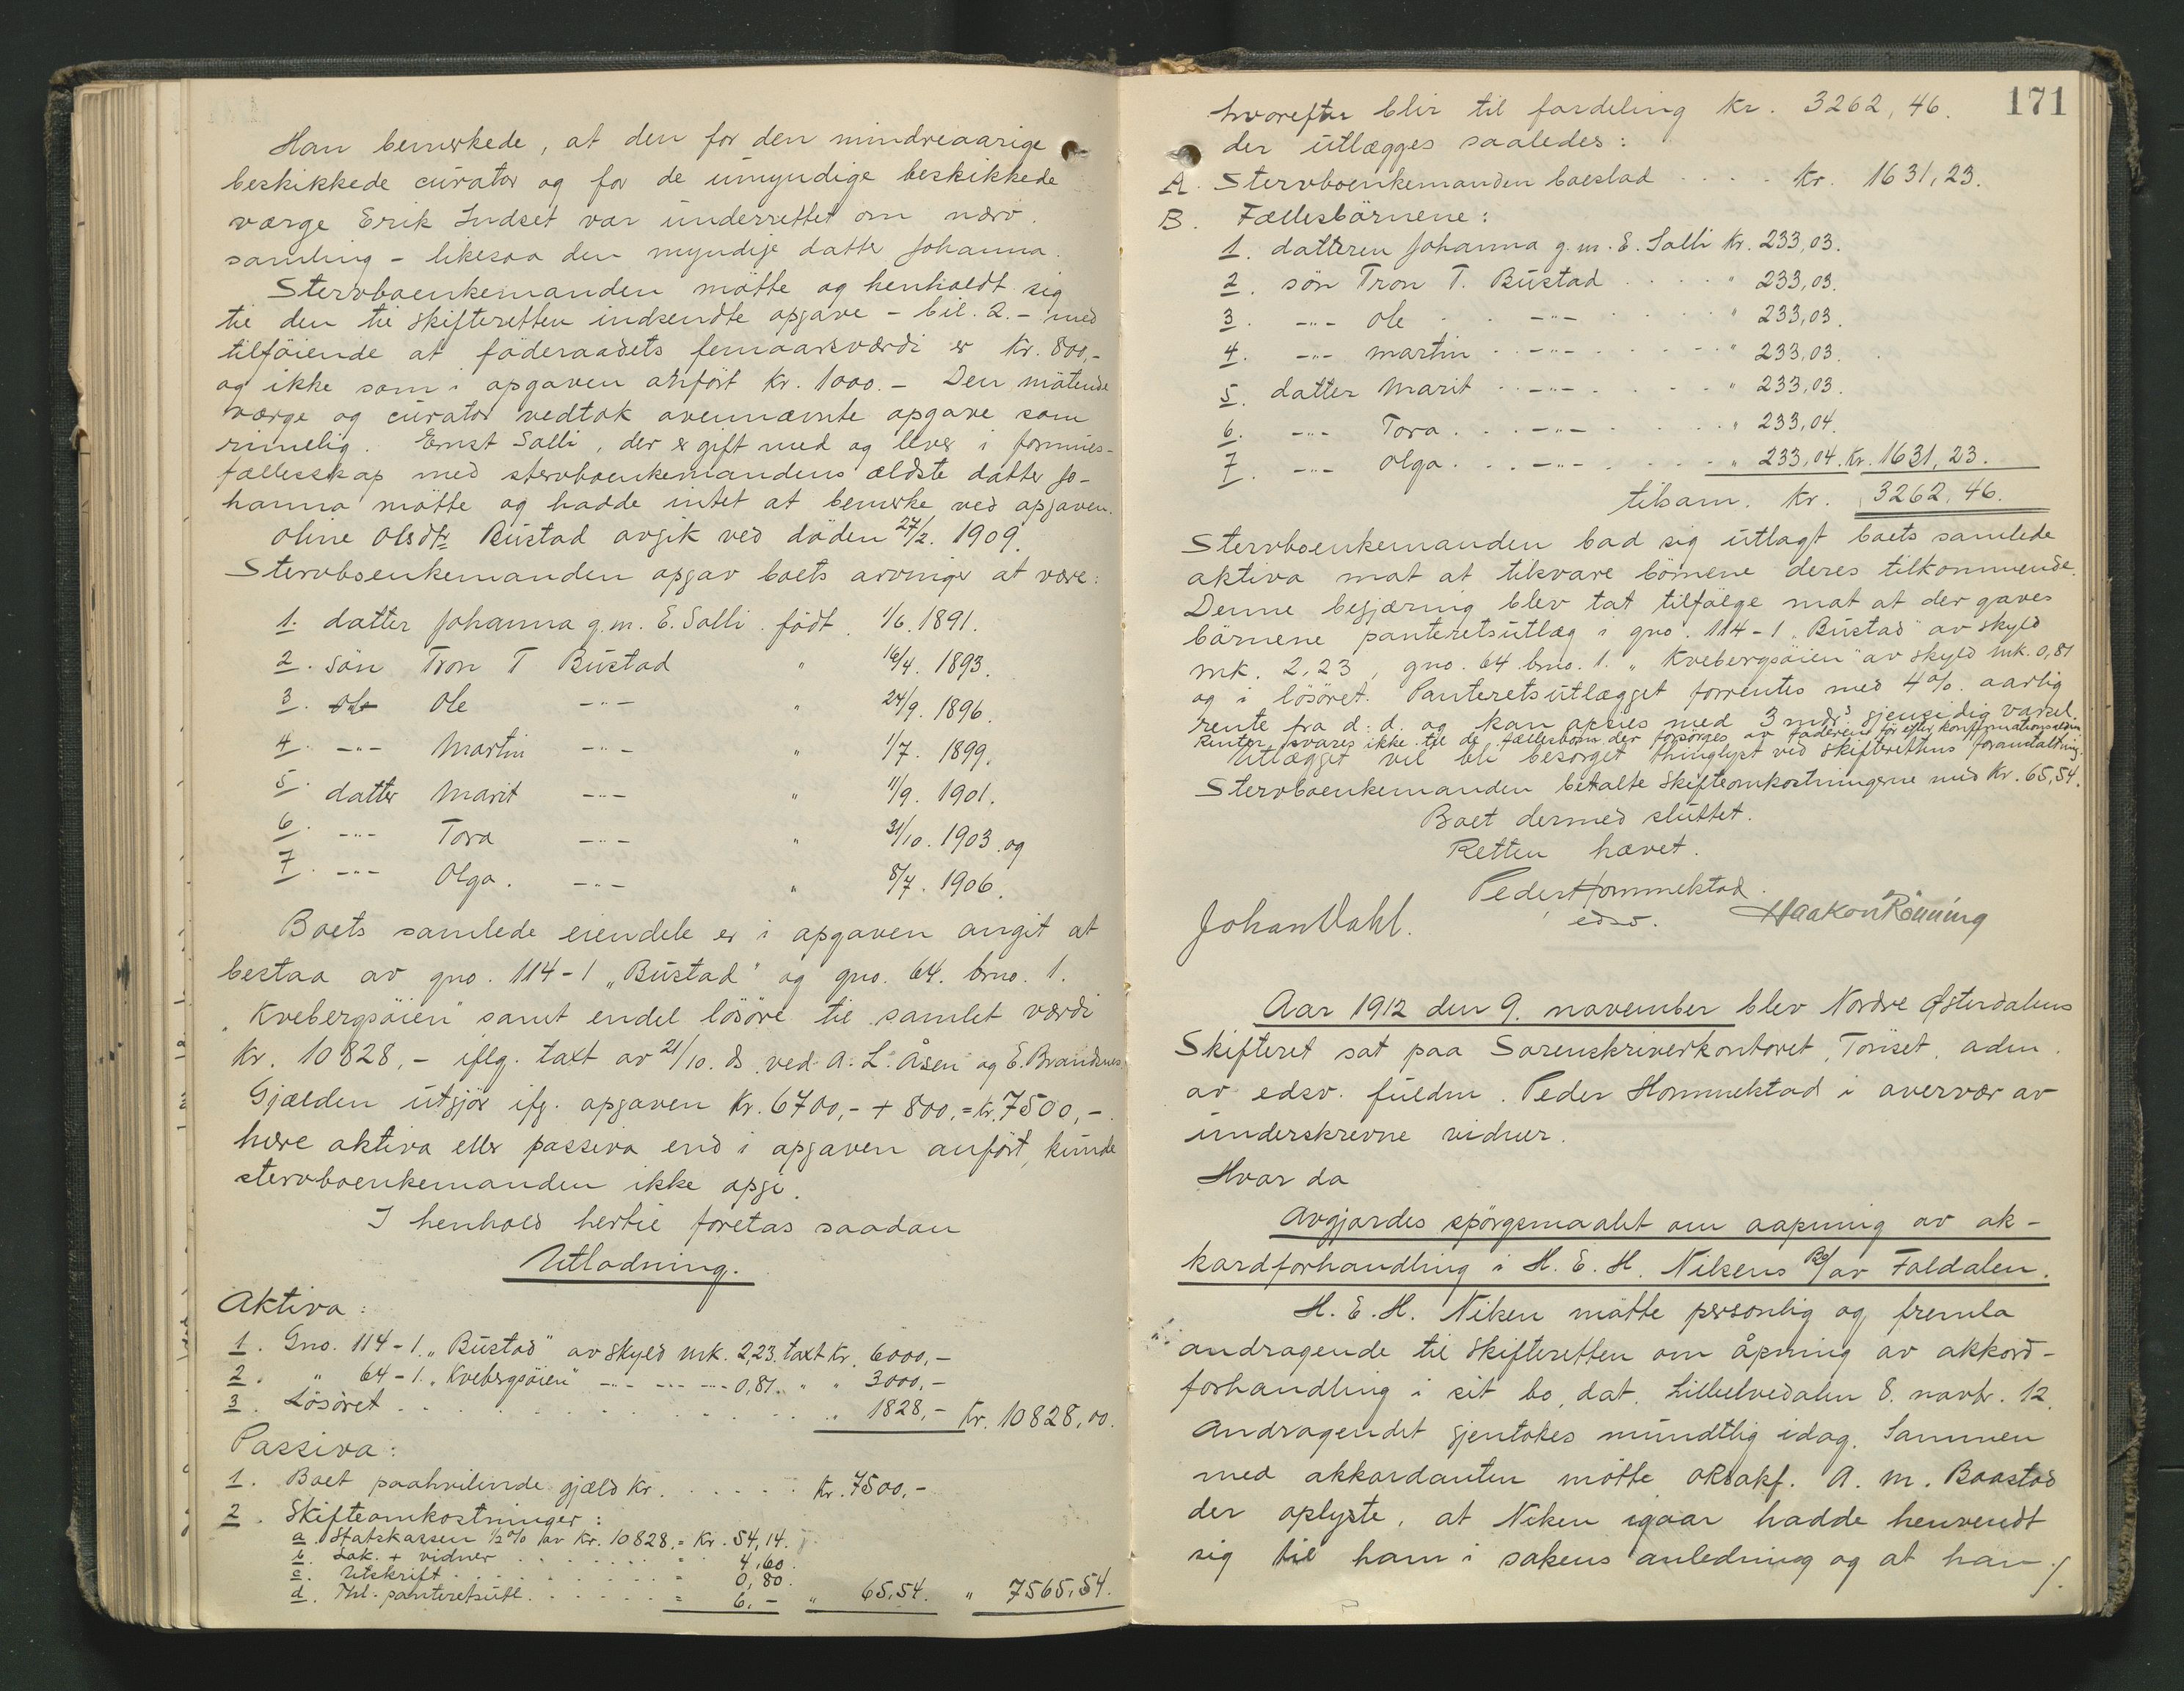 Han bemerkede, at den for den mindreaarige
beskikkede curator og for de umyndige beskikkede
værge Erik Indset var underrettet om nærv.
samling - likesaa den myndige datter Johanna.
Stervboenkemanden mötte og henholdt sig
til den til skifteretten indsendte opgave - bil. 2. - med
tilföiende at föderaadets femaarsværdi er kr. 800,-
og ikke som i opgaven anfört kr. 1000.- Den mötende
værge og curator vedtok ovennævnte opgave som
rimelig. Ernst Salli, der er gift med og lever i formues-
fællesskap med stervboenkemandens ældste datter Jo-
hanna mötte og hadde intet at bemerke ved opgaven.
Oline Olsdtr Bustad avgik ved döden 27/2. 1909.
Stervboenkemanden opgav boets arvinger at være:
1. datter Johanna g.m. E. Salli. födt 1/6. 1891.
2. sön Tron T Bustad " 16/4. 1893.
3. Ole -"- " 24/9. 1896.
4. -"- Martin -"- " 1/7. 1899.
5. datter Marit -"- " 11/9. 1901.
6. -"- Tora -"- " 31/10. 1903. og
7. -"- Olga. -"- " 8/7. 1906.
Boets samlede eiendele er i opgaven angit at
bestaa av gno. 114-1 „Bustad" og gno. 64. brno. 1.
„Kvebergsöien" samt endel lösöre til samlet værdi
kr. 10828,- iflg. taxt av 21/10. ds. ved A. L. Åsen og E. Brandsnes.
Gjælden utgjör ifg. opgaven kr. 6700,- + 800,= kr. 7500,-.
Mere aktiva eller passiva end i opgaven anfört, kunde
stervboenkemanden ikke opgi.
I henhold hertil foretas saadan
Utlodning.
Aktiva:
1. Gno. 114-1. „Bustad" av skyld mk. 2,23. taxt kr. 6000,-
2. " 64-1. „Kvebergsöien" -"- -"- -"- 0,81. " " 3000,-
3. Lösöret . . . . " 1828,- kr. 10828,00.
Passiva:
1. Boet paahvilende gjæld kr. . . . . kr. 7500,-
2. Skifteomkostninger:
a. Statskassen ½% av kr. 10828,= kr. 54,14.
b. Lok. + vidner . . . . " 4,60.
c. Utskrift . . . . " 0,80.
d. Thl. panteretsutl. . . . . " 6,- " 65,54. " 7565,54.
171
hvorefter blir til fordeling kr. 3262,46.
der utlægges saaledes:
A. Stervboenkemanden boeslod . . . . kr. 1631,23.
B. Fællesbörnene:
1. datteren Johanna g.m. E. Salli kr. 233,03.
2. sön Tron T. Bustad . . . . " 233,03.
3. -"- Ole . . -"- . . . . " 233,03.
4. -"- Martin . . -"- . . . . " 233,03.
5. datter Marit . . -"- . . . . " 233,03.
6. -"- Tora . . . -"- . . . . " 233,04.
7. -"- Olga . . . -"- . . . . " 233,04. kr. 1631,23.
tilsam. kr. 3262,46.
Stervboenkemanden bad sig utlagt boets samlede
aktiva mot at tilsvare börnene deres tilkommende.
Denne begjæring blev tat tilfölge mot at der gaves
börnene panteretsutlæg i gno. 114-1 „Bustad" av skyld
mk. 2,23, gno. 64 brno. 1. „Kvebergsöien" av skyld mk. 0,81
og i lösöret. Panteretsutlægget forrentes med 4% aarlig
rente fra d. d. og kan opsies med 3 mdrs gjensidig varsel.
Renter svares ikke til de fællesbörn der forsörges av faderen för efter konfirmationsalderen.
Utlægget vil bli besörget thinglyst ved skifterettens foranstaltning.
Stervboenkemanden betalte skifteomkostningerne med kr. 65,54.
Boet dermed sluttet.
Retten hævet.
Peder Hommelstad.
edsv.
Johan Dahl. Haakon Rönning
Aar 1912 den 9. november blev Nordre Østerdalens
Skifteret sat paa Sorenskriverkontoret, Tönset, adm.
av edsv. fuldm. Peder Hommelstad i overvær av
underskrevne vidner.
Hvor da
Avgjordes spörgsmaalet om aapning av ak-
kordforhandling i H. E. H. Nilsens Bo/ av Foldalen.
H. E. H. Nilsen mötte personlig og fremla
andragende til skifteretten om åpning av akkord-
forhandling i sit bo, dat. Lilleelvedalen 8. novbr. 12.
Andragendet gjentokes mundtlig idag. Sammen
med akkordanten mötte oRsakf. A. M. Baastad
der oplyste, at Nilsen igaar hadde henvendt
sig til ham i sakens anledning og at han ./.